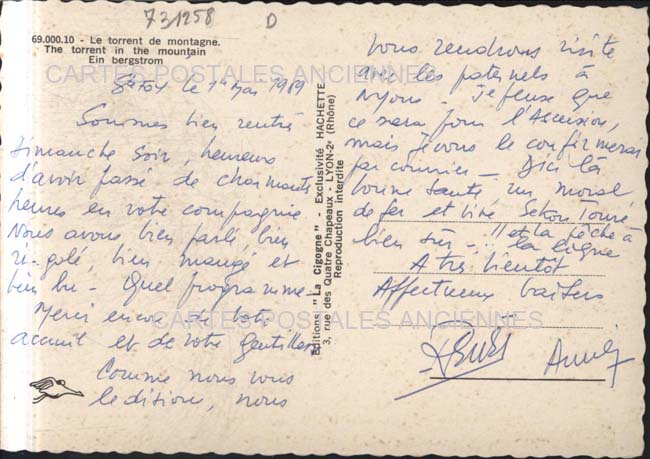 731258
D
69.000.10 - Le torrent de montagne.
The torrent in the mountain
Ein bergstrom
CARTES POSTALES ANCIENNES
le 1er Mai 1989
Sommes bien rentrés
dimanche soir, heureux
d'avoir passé de charmants
heures en votre compagnie
Nous avons bien parlé, bien
rigolé, bien mangé et
bien bu - Quel programme -
Merci encore de votre
accueil et de votre gentillesse
CARTES POSTALES ANCIENNES
Comme nous vous
le disions, nous
Editions "La Cigogne" - Exclusivité HACHETTE
3, rue des Quatre Chapeaux - LYON-2e (Rhône)
Reproduction interdite
vous rendrons visite
avec les paternels à
Nyons - Je pense que
ce sera pour l'Ascension,
mais je vous le confirmerai
par courrier - D'ici là
bonne santé un moral
de fer et vive Sekou Touré
bien sûr - !! et la pêche à
la ligne
A très bientôt
Affectueux baisers
Annie